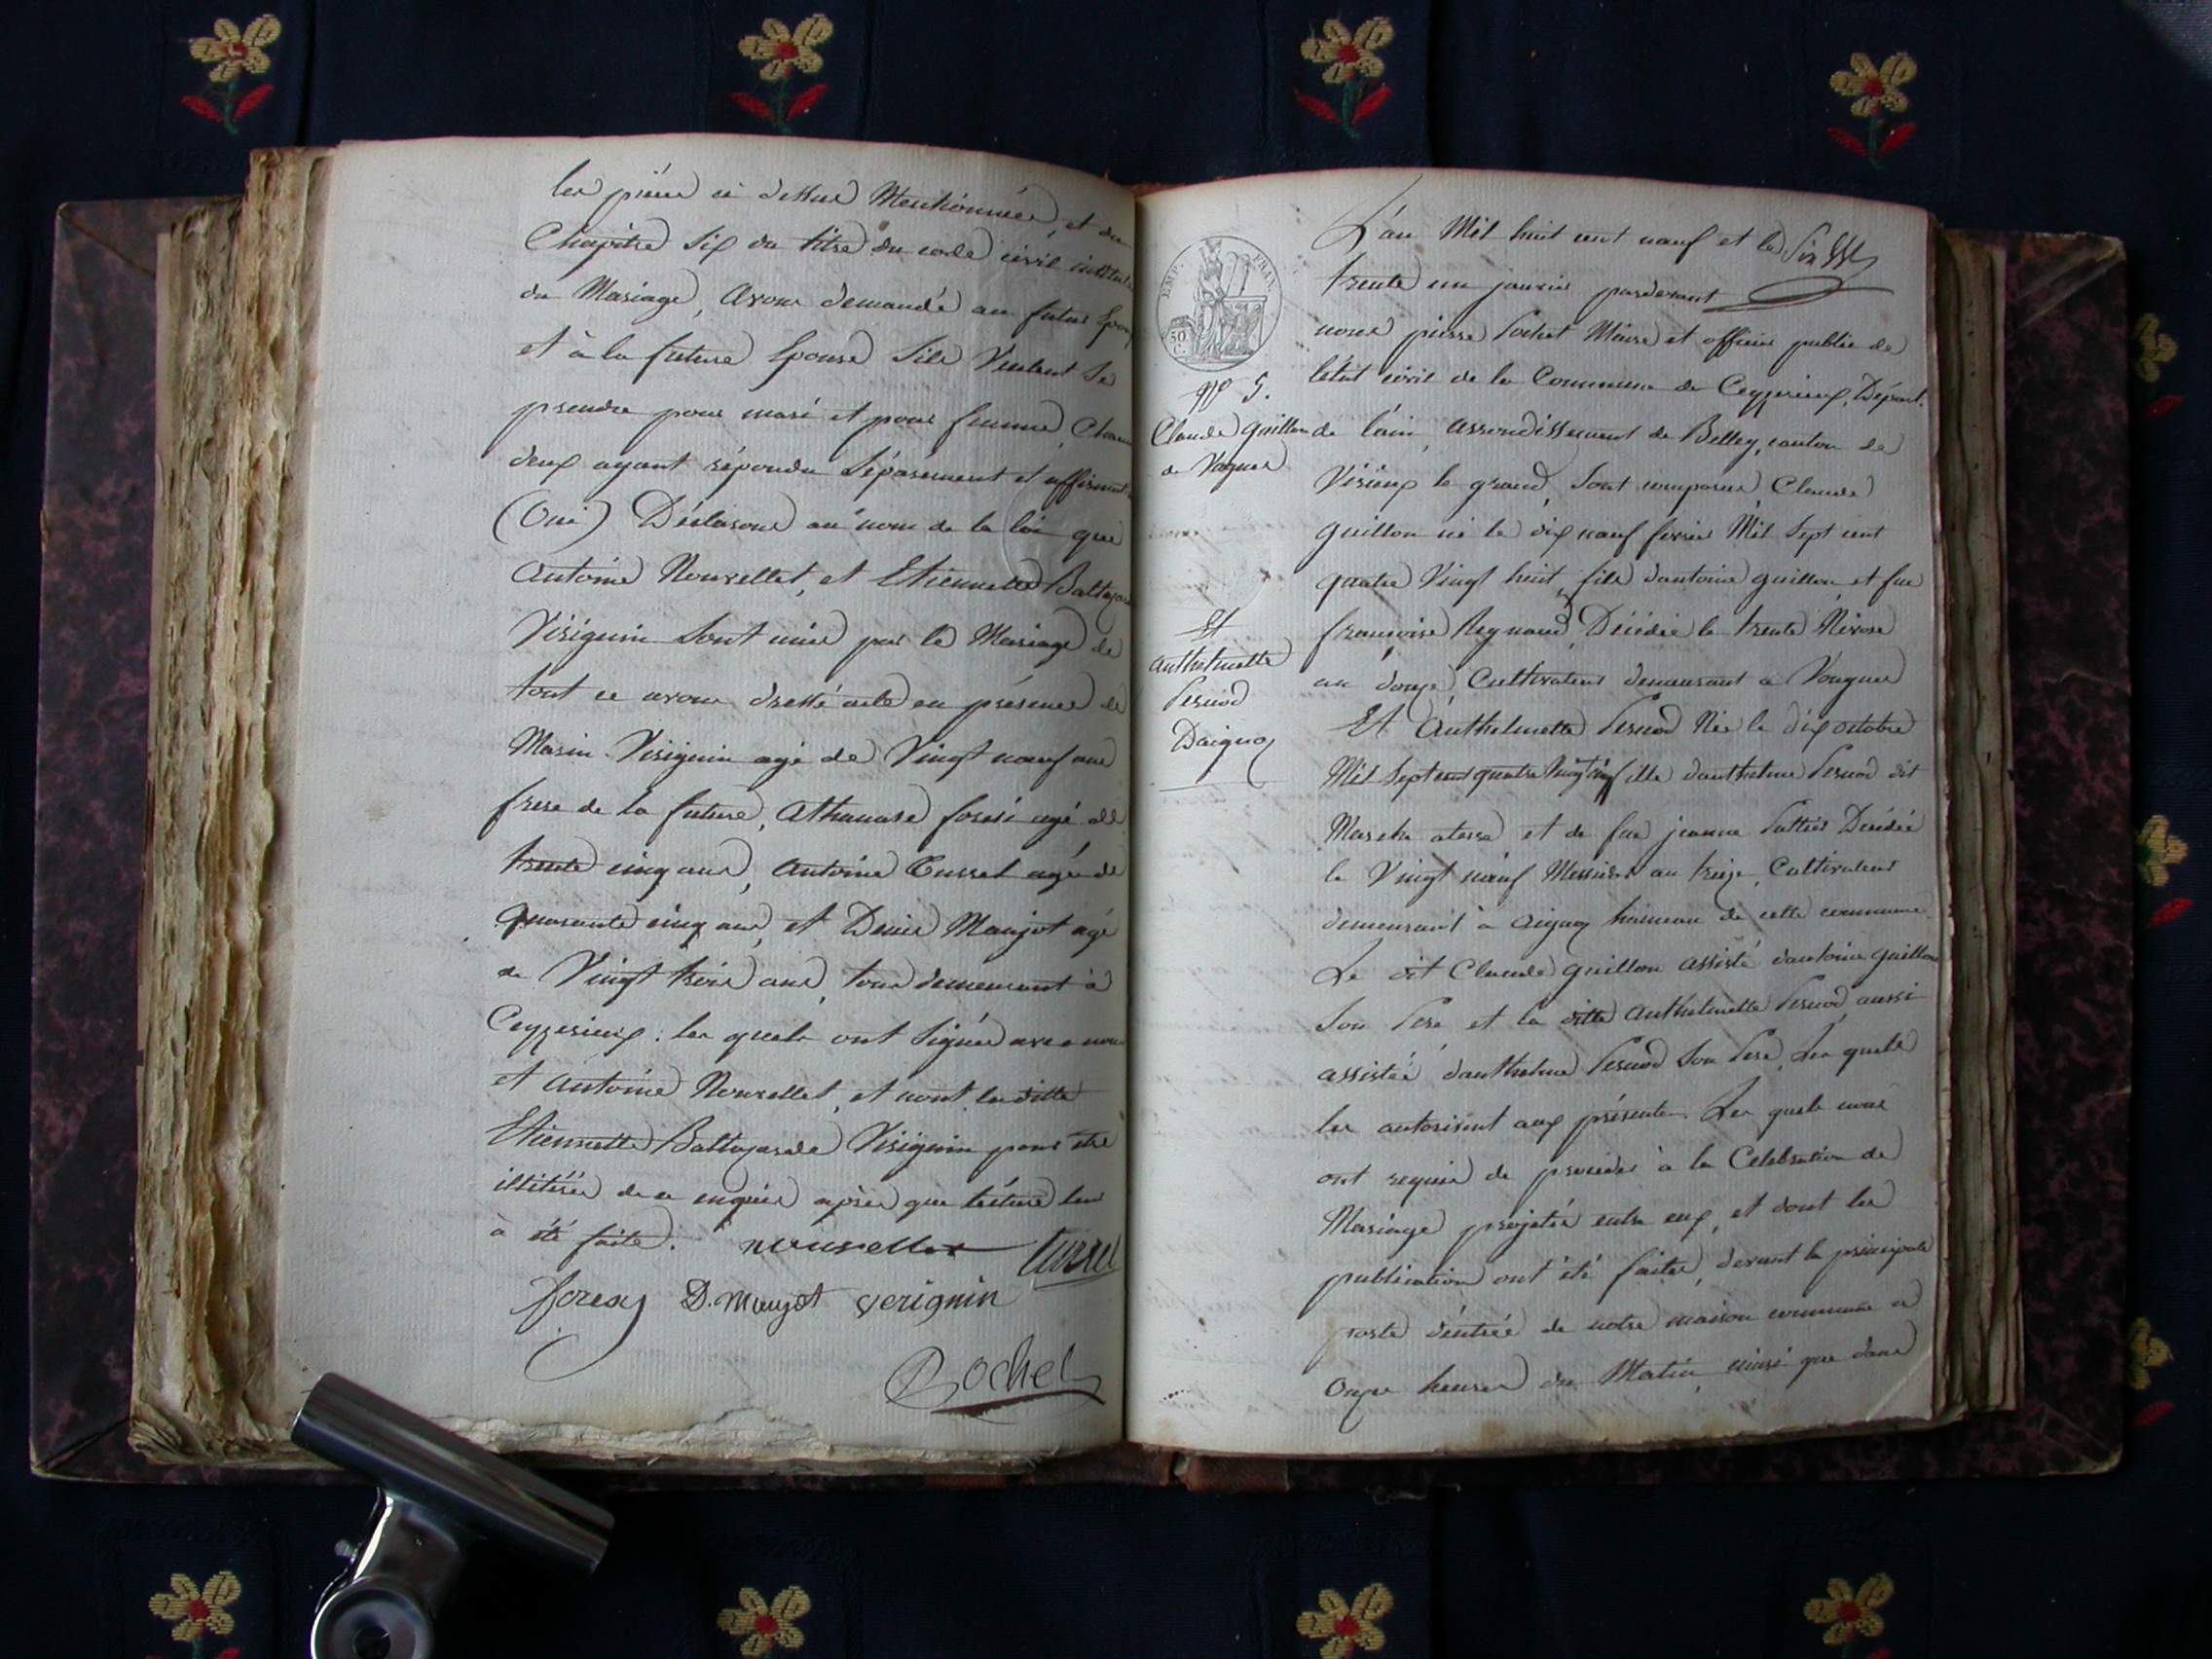 les pièces ci dessus Mentionnées, et du
Chapitre six du titre du code civil intitulé
du Mariage, avons demandé au futur Epoux
et à la future Epouse sils Veulent se
prendre pour mari et pour femme, Chacun
deux ayant répondu Séparément et affirmati
(Oui) Déclarons au nom de la loi que
antoine Nouvellet, et Etiennette Baltaza
Vésignin sont unis par le Mariage de
tout ce avons dressé acte en présence de
Marin Vésignin agé de Vingt neuf ans
frere de la future, athanase forési agé de
trente cinq ans, antoine Cusset agé de
quarante cinq ans, et Denis Maujot agé
de Vingt trois ans, tous demeurant à
Ceyzerieux : les quels ont Signés avec nous
et antoine Nouvellet, et non la ditte
Etiennette Baltazarde Vésignin pour etre
illitérée de ce enquise après que lécture leur
à été faite. nouvellet
D. Maujot verignin
Rochet
L'an Mil huit cent neuf et le
trente un janvier pardevant
nous pierre Rochet Maire et officier public de
létat civil de la Commune de Ceyzerieux, Départ.
EMP. FRAN.
50 C.
No 5.
Claude guillon
de Vognes
Et
anthelmette
Pernod
Daignoz
de l'ain, arrondissement de Belley, canton de
Virieux le grand, sont comparus, Claude
guillon né le dix neuf fevrier Mil Sept cent
quatre Vingt huit, fils dantoine guillon et feu
françoise Reynaud, Décédée le trente Nivose
an douze, Cultivateur demeurant à Vognes
Et Anthelmette Pernod Née le dix octobre
Mil Sept cent quatre Vingt fille danthelme Pernod dit
et de feu jeanne Décédée
le Vingt neuf Messidor an treize, Cultivateur
demeurant à aignoz hameau de cette commune
Le dit Claude guillon assisté dantoine guillon
Son Pere et la ditte anthelmette Pernod, aussi
assistée danthelme Pernod Son Pere, Les quels
les autorisent aux présentes. Les quels nous
ont requis de procéder à la Célébration de
Mariage projetée entre eux, et dont les
publication ont été faites, devant la principale
porte déntrée de notre maison commune a
onze heures du Matin, ainsi que dans